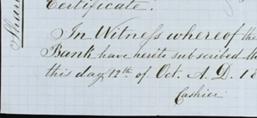 Certificate.
In Witness whereof the
Bank have herits subscribed th
this day 12th of Oct. A. D. 18
Cashier